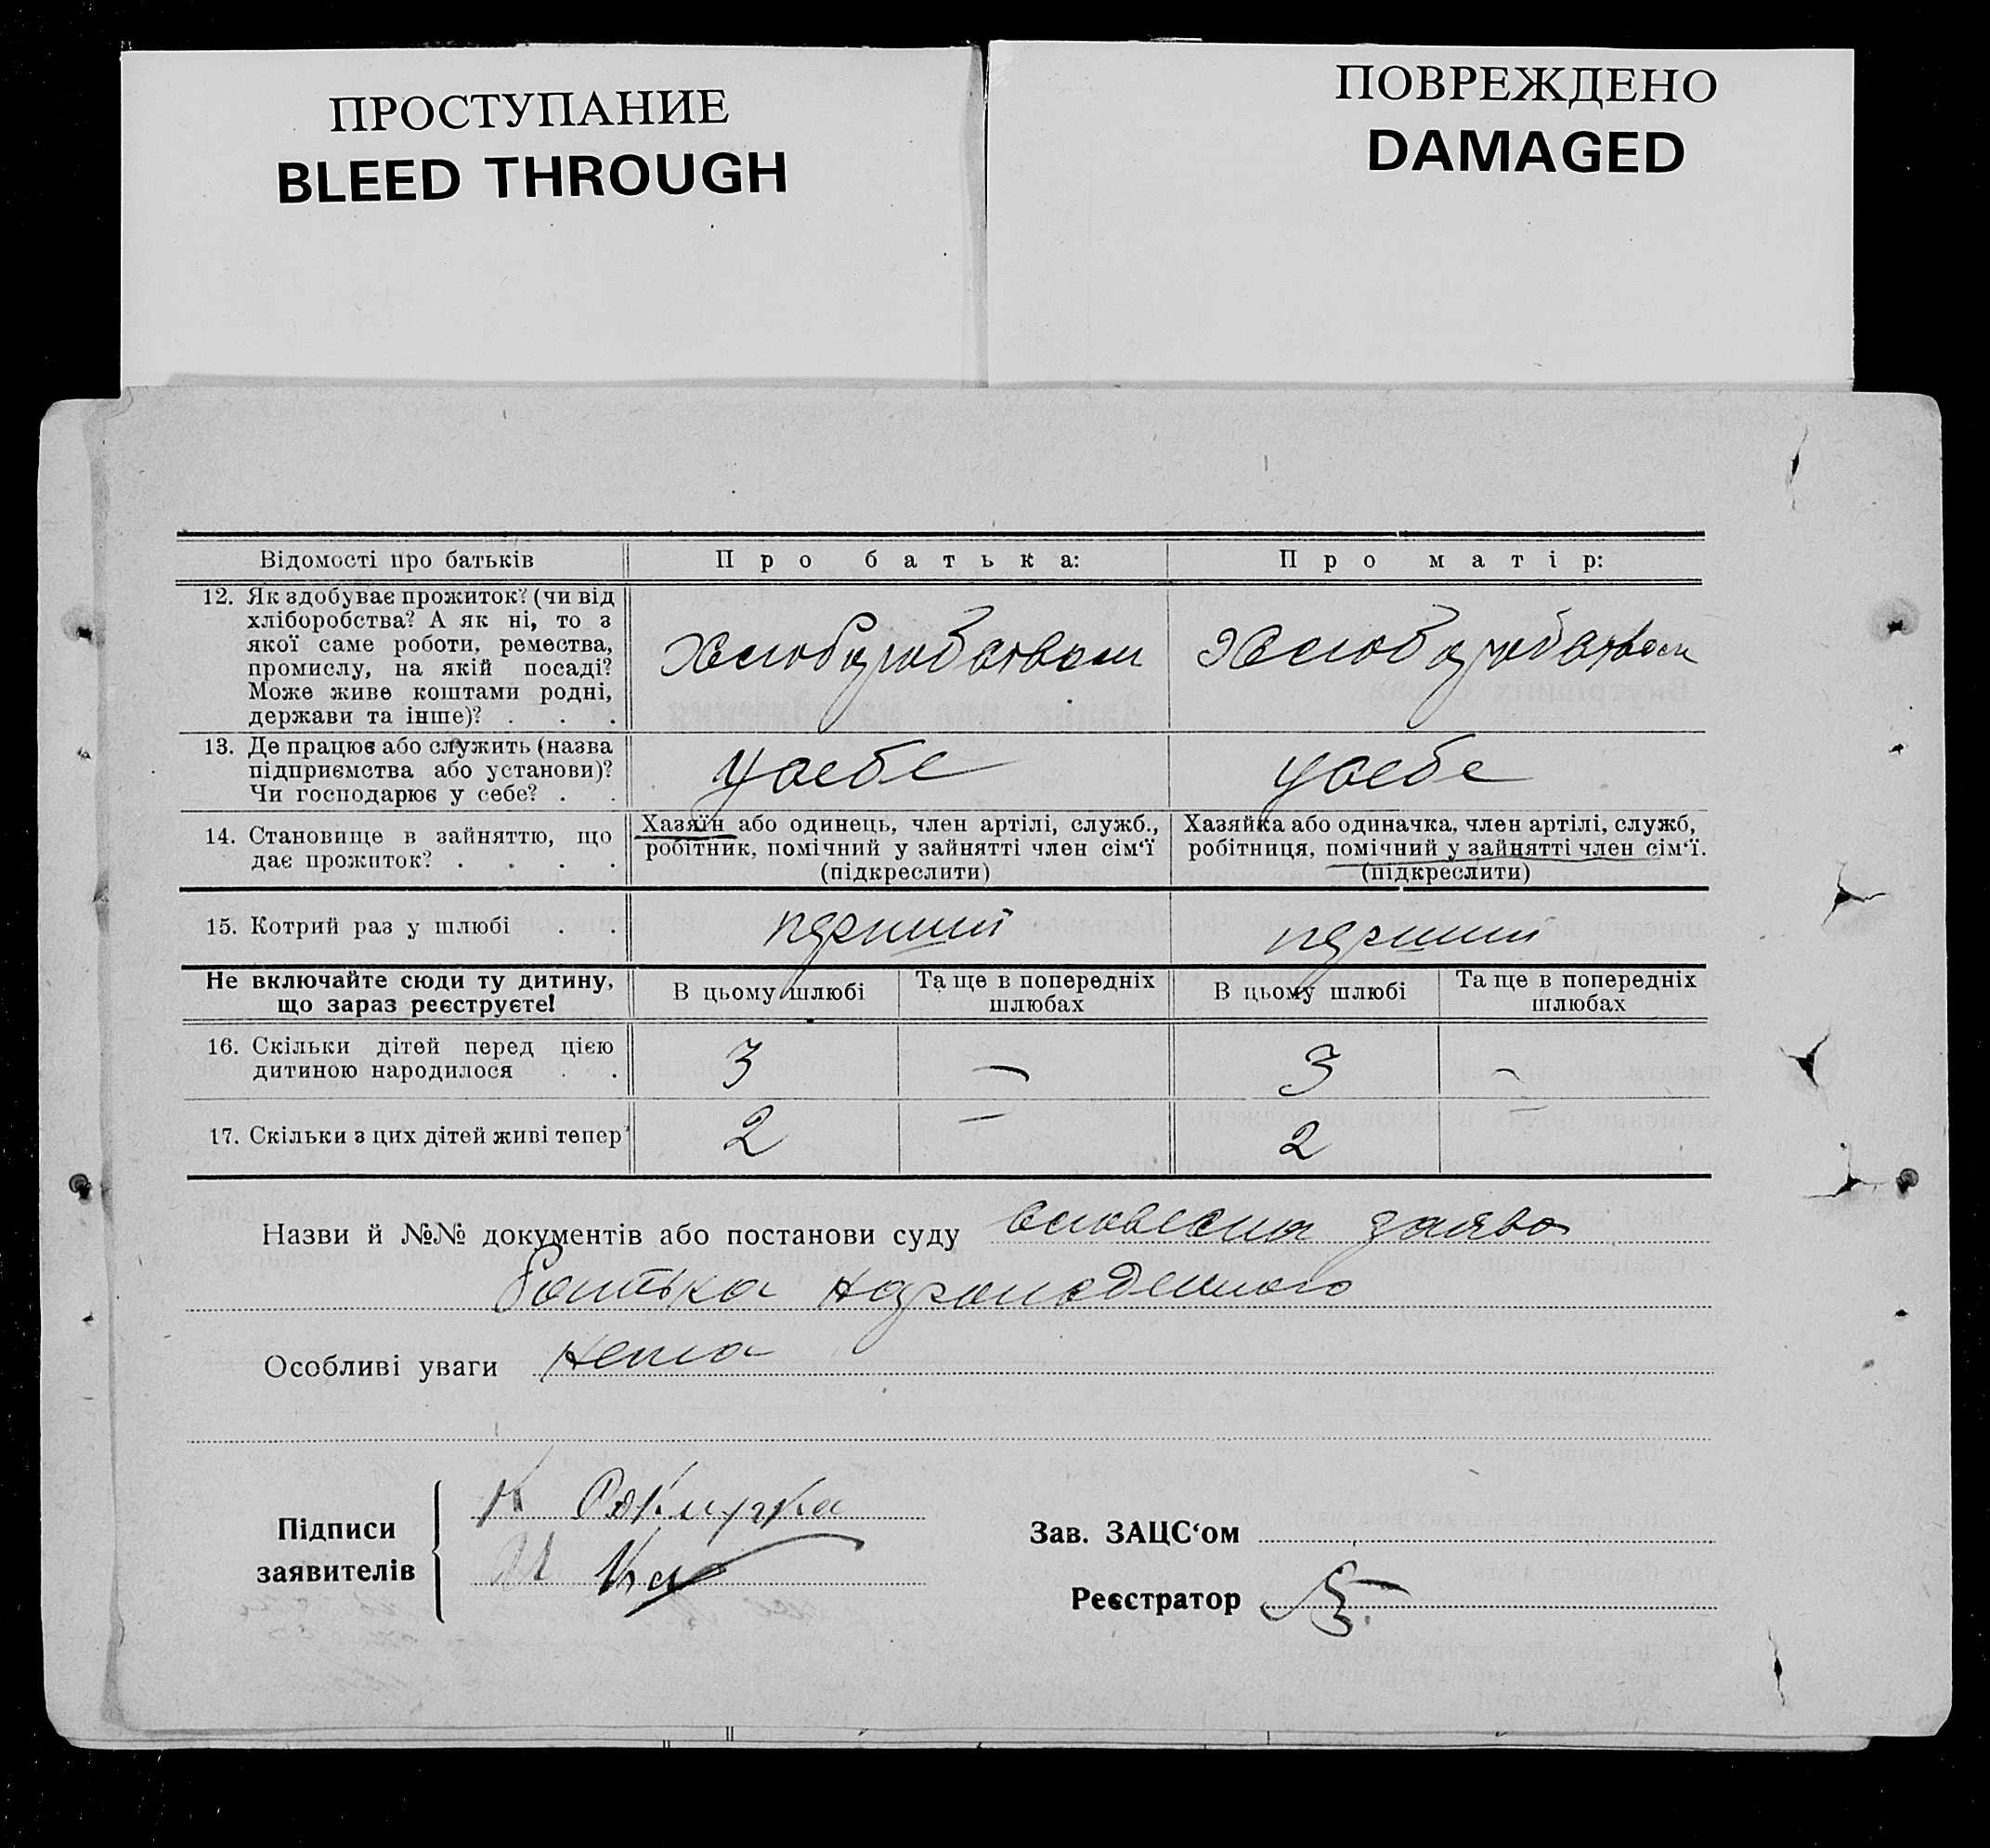 ПРОСТУПАНИЕ
BLEED THROUGH
ПОВРЕЖДЕНО
DAMAGED
Відомості про батьків
Про батька:
Про матір:
12. Як здобуває прожиток? (чи від
хліборобства? А як ні, то з
якої саме роботи, ремества,
промислу, на якій посаді?
Може живе коштами родні,
держави та інше)? . . .
13. Де працює або служить (назва
підприємства або установи)?
Чи господарює у себе? . .
у себе
у себе
14. Становище в зайняттю, що
дає прожиток? . . . .
Хазяїн або одинець, член артілі, служб.,
робітник, помічний у зайнятті член сім‘ї
(підкреслити)
Хазяйка або одиначка, член артілі, служб,
робітниця, помічний у зайнятті член сім‘ї.
(підкреслити)
15. Котрий раз у шлюбі . .
перший
перший
Не включайте сюди ту дитину,
що зараз реєструєте!
В цьому шлюбі
Та ще в попередніх
шлюбах
В цьому шлюбі
Та ще в попередніх
шлюбах
16. Скільки дітей перед цією
дитиною народилося . .
3 — 3 —
17. Скільки з цих дітей живі тепер
2 — 2 —
Назви й №№ документів або постанови суду словесна заява
батька
Особливі уваги нема
Підписи
заявителів
К
Зав. ЗАЦС‘ом
Реєстратор